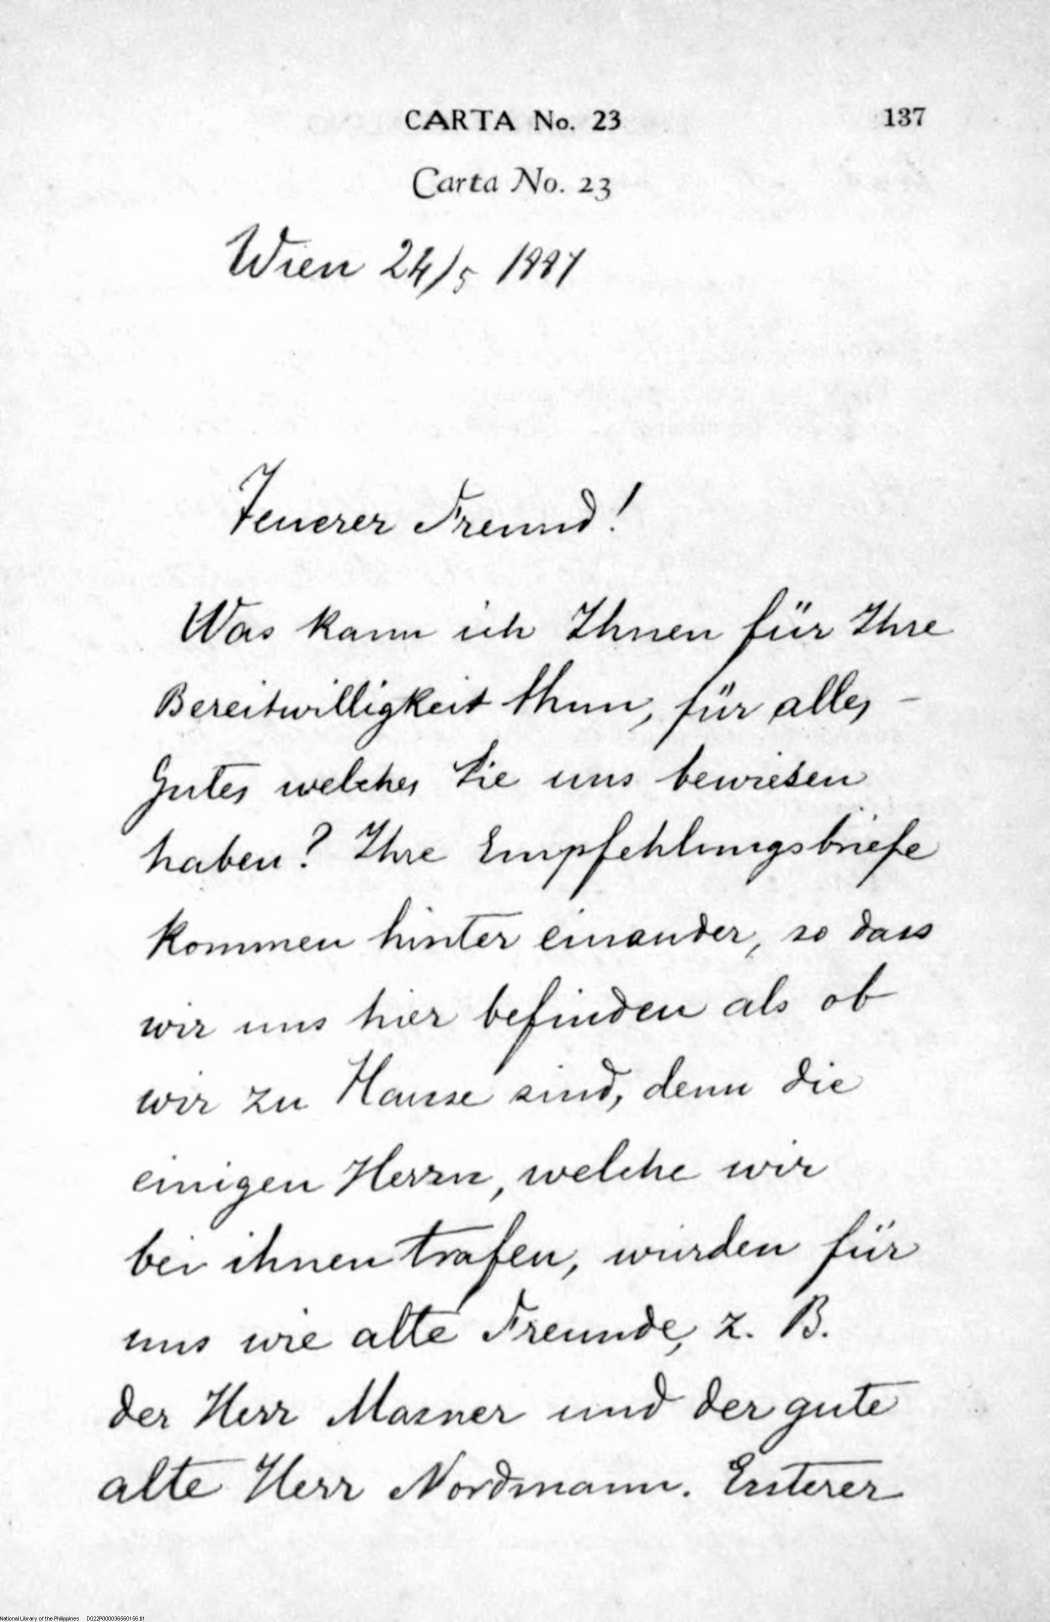 CARTA No. 23 137
Carta No. 23
Wien 24/5 1887
Teuerer Freund!
Was kann ich Ihnen für Ihre
Bereitwilligkeit thun, für alles –
Gutes welches Sie uns bewiesen
haben? Ihre Empfehlungsbriefe
kommen hinter einander, so dass
wir uns hier befinden als ob
wir zu Hause sind, denn die
einigen Herrn, welche wir
bei ihnen trafen, wurden für
uns wie alte Freunde, z. B.
der Herr Masner und der gute
alte Herr Nordmann. Ersterer
National Library of the Philippines D022P000036560156.tif